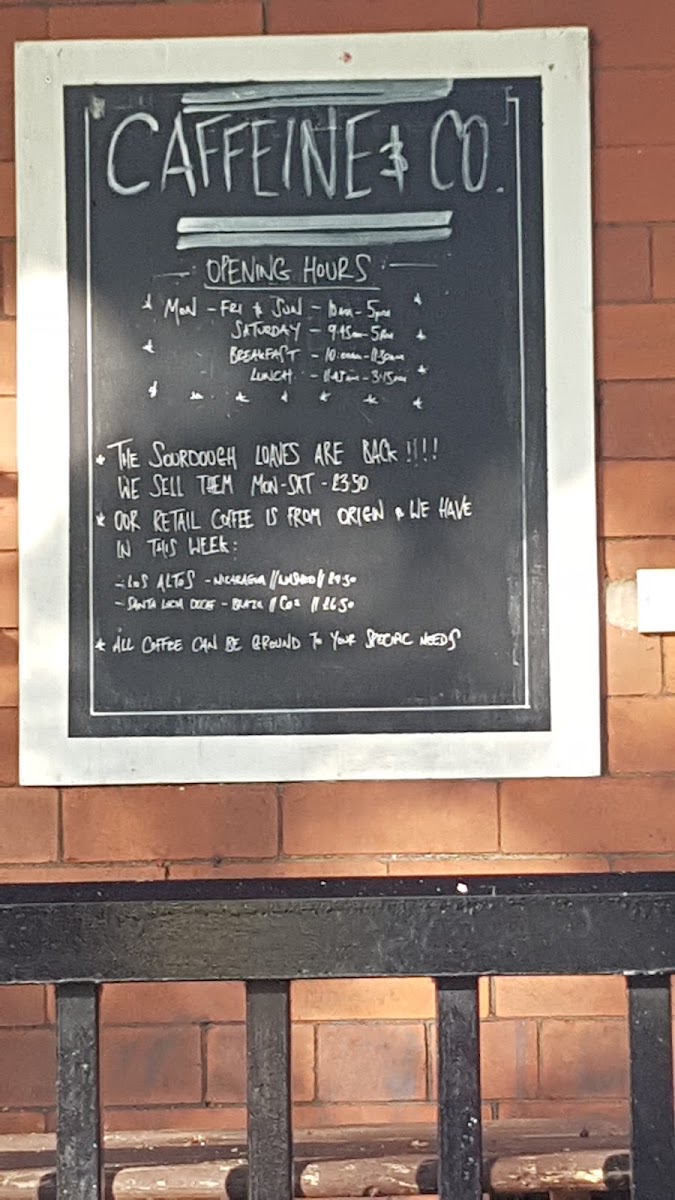 CAFFEINE & CO.
OPENING HOURS
MON - FRI & SUN - 10am - 5pm
SATURDAY - 9.45am - 5pm
BREAKFAST - 10:00am - 11:30am
LUNCH - 11.45am - 3.15pm
* THE SOURDOUGH LOAVES ARE BACK !!!!
WE SELL THEM MON-SAT - £3.50
* OUR RETAIL COFFEE IS FROM ORIGIN & WE HAVE
IN THIS WEEK:
- LOS ALTOS - NICARAGUA // WASHED //
- SANTA LUCIA DECAF - BRAZIL // CO2 // £6.50
* ALL COFFEE CAN BE GROUND TO YOUR SPECIFIC NEEDS